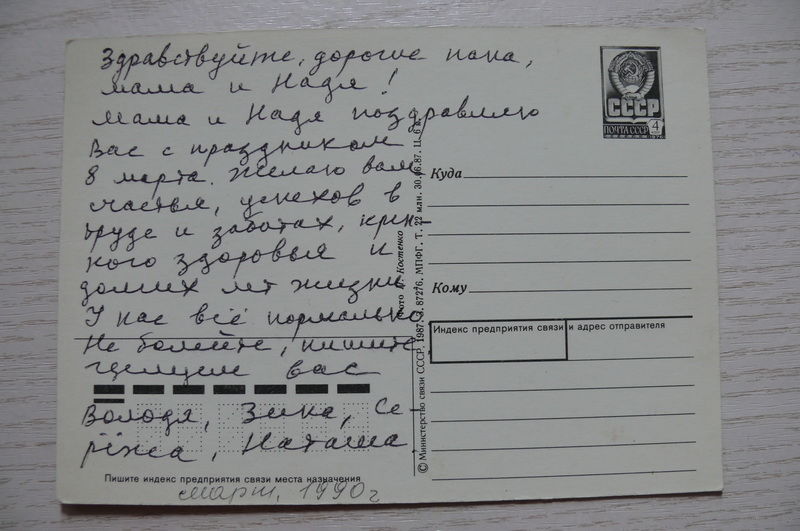 Здравствуйте, дорогие папа,
мама и Надя!
Мама и Надя поздравляю
Вас с праздником
8 марта. Желаю вам
счастья, успехов в
труде и заботах, креп-
кого здоровья и
долгих лет жизни.
У нас всё нормально
Не болейте, пишите,
целуем вас
Володя, Зина, Се-
рёжа, Наташа.
Пишите индекс предприятия связи места назначения
март, 1990г
Фото Костенко
© Министерство связи СССР. 1987. З. 87276. МПФГ. Т. 22 млн. 30.06.87. Ц. 6 к.
СССР
ПОЧТА СССР
4
Куда
Кому
Индекс предприятия связи и адрес отправителя